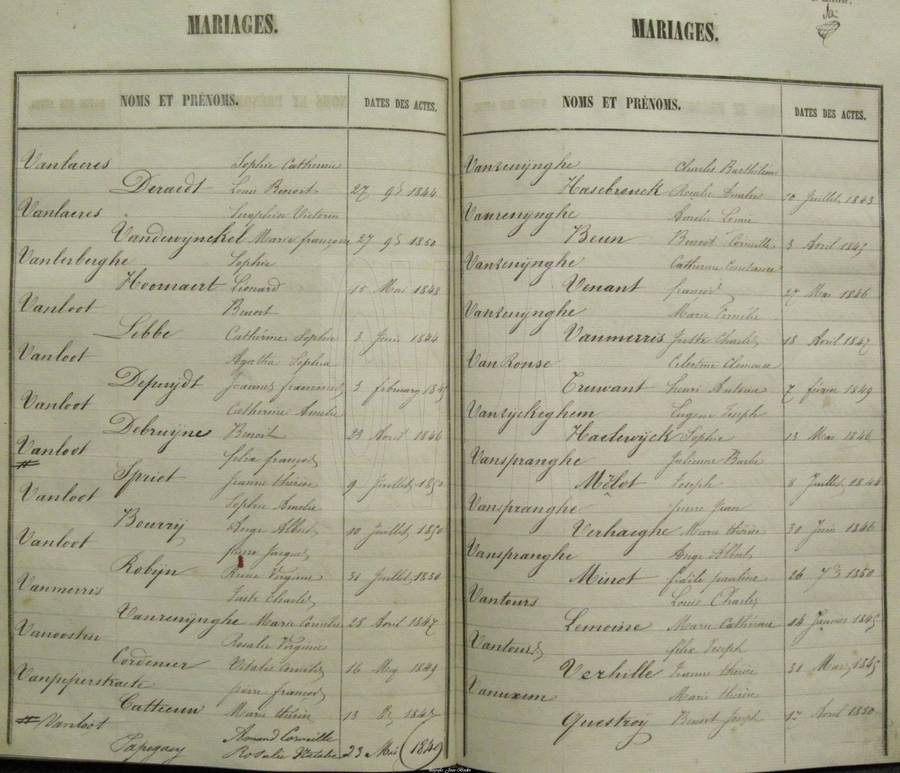 MARIAGES.
NOMS ET PRÉNOMS. DATES DES ACTES.
Vanlaeres Sophie Catherine
Deraedt Louis Benoit 27 9b 1844
Vanlaeres Seraphin Victorin
Vandewÿnckel Marie françoise 27 9b 1850
Vanlerberghe Sophie
Hoornaert Léonard 15 Mai 1848
Vanloot Benoit
Lebbe Catherine Sophie 3 Juin 1844
Vanloot Agatha Sophia
Depuÿdt Joannes franciscus 3 february 1845
Vanloot Catherine Amelie
Debruÿne Benoit 29 Avril 1846
Vanloot felix françois
# Spriet Jeanne thérèse 9 Juillet 1850
Vanloot Sophie Amelie
Bourrÿ Ange Albert 10 Juillet 1850
Vanloot pierre Jacques
Robÿn Reine Virginie 31 Juillet 1850
Vanmerris Juste Charles
Vanrenÿnghe Marie Cornélie 28 Avril 1847
Vanoosten Rosalie Virginie
Cordonner Natalie 16 1849
Vanpeperstraete pierre françois
Catteeuw Marie thérèse 13 1847
# Vanloot Amand Corneille
Papegaey Rosalie Natalie 23 Mai 1849
MARIAGES.
NOMS ET PRÉNOMS. DATES DES ACTES.
Vanrenÿnghe Charles Barthélemi
Hasebrouck Rosalie Amelie 10 Juillet 1843
Vanrenÿnghe Aurelie Louise
Beun Benoit Corneille 3 Avril 1845
Vanrenÿnghe Catherine Constance
Venant françois 27 Mai 1846
Vanrenÿnghe Marie Cornélie
Vanmerris Juste Charles 18 Avril 1847
Van Ronse Celestine Clemence
Truwant Henri Antoine 7 février 1849
Vanrÿckeghem Eugene Joseph
Haelewÿck Sophie 13 Mai 1846
Vanspranghe Julienne Barbe
Mélot Joseph 8 Juillet
Vanspranghe pierre Jean
Verhaeghe Marie thérèse 30 Juin 1846
Vanspranghe Ange Albert
Minot fidèle pauline 26 7b 1850
Vantours Louis Charles
Lemoine Marie Catherine 14 Janvier 1845
Vantours felix Joseph
Verhille Jeanne thérèse 31 Mars 1845
Vanuxem Marie thérèse
Questroÿ Benoit Joseph 17 Avril 1850